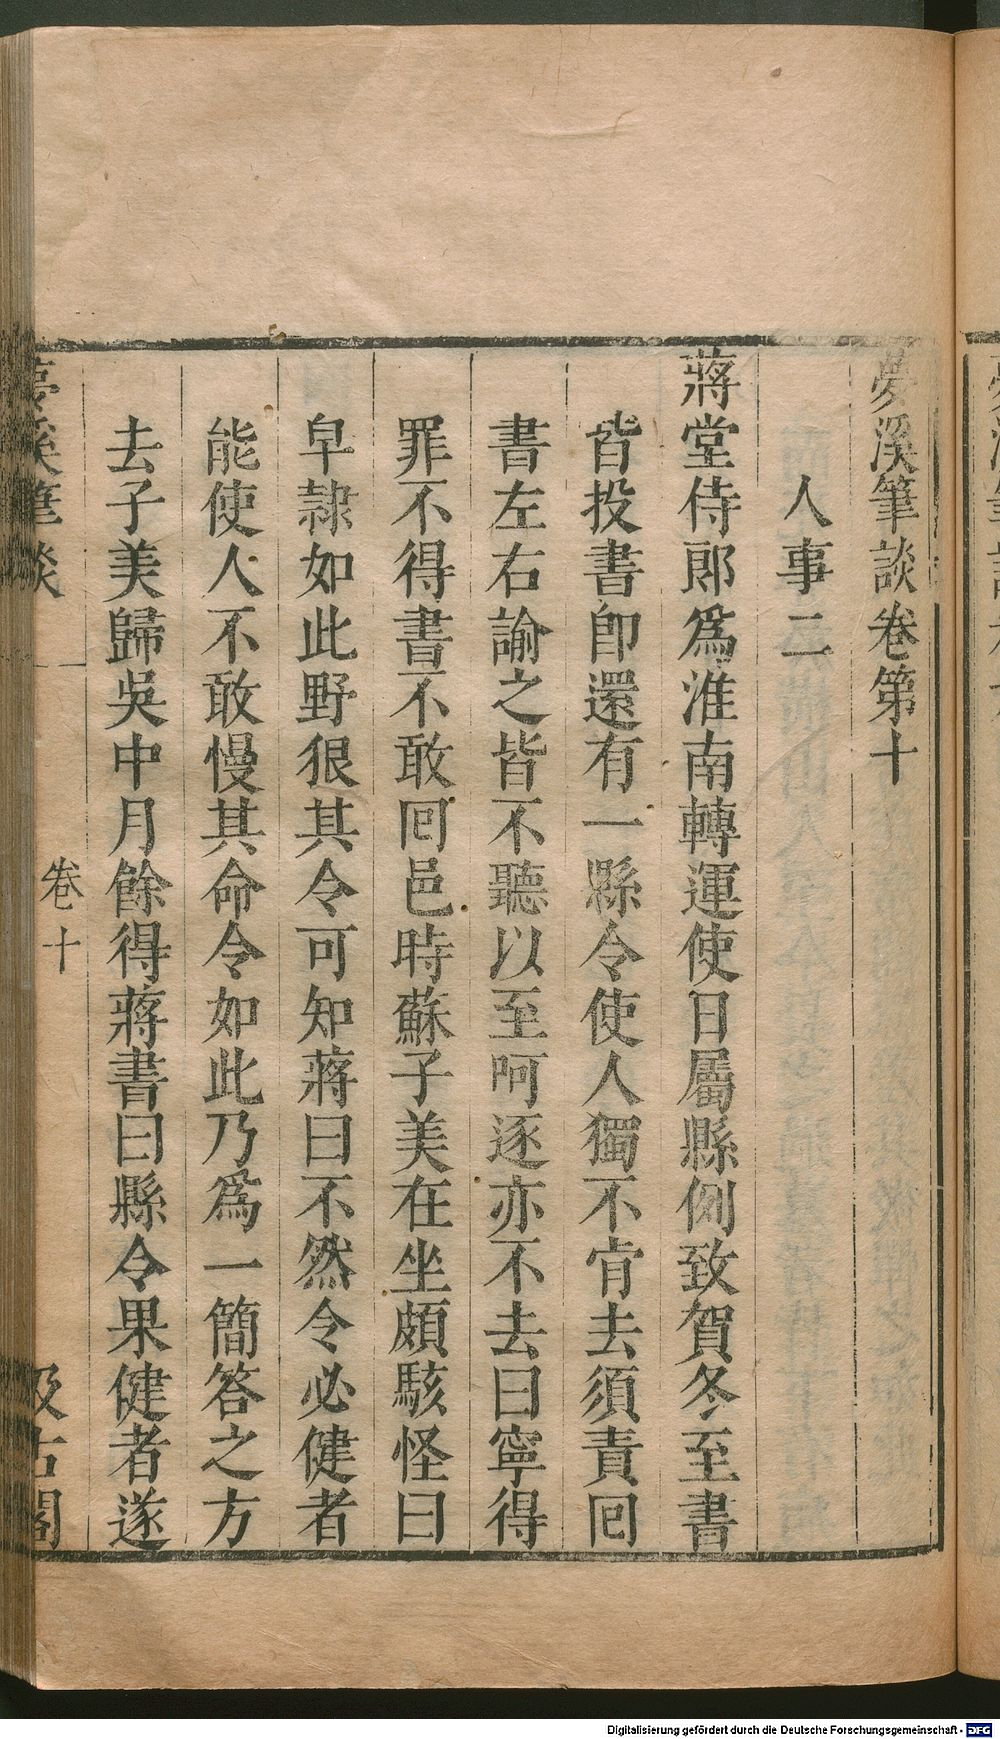 夢溪筆談卷第十
人事二
蔣堂侍郎爲淮南轉運使日屬縣例致賀冬至書
皆投書卽還有一縣令使人獨不肯去須責囘
書左右諭之皆不聽以至呵逐亦不去曰寧得
罪不得書不敢囘邑時蘇子美在坐頗駭怪曰
皁隷如此野狠其令可知蔣曰不然令必健者
能使人不敢慢其命令如此乃爲一簡答之方
去子美歸吳中月餘得蔣書曰縣令果健者遂
夢溪筆談
卷十
汲古閣
Digitalisierung gefördert durch die Deutsche Forschungsgemeinschaft - DFG